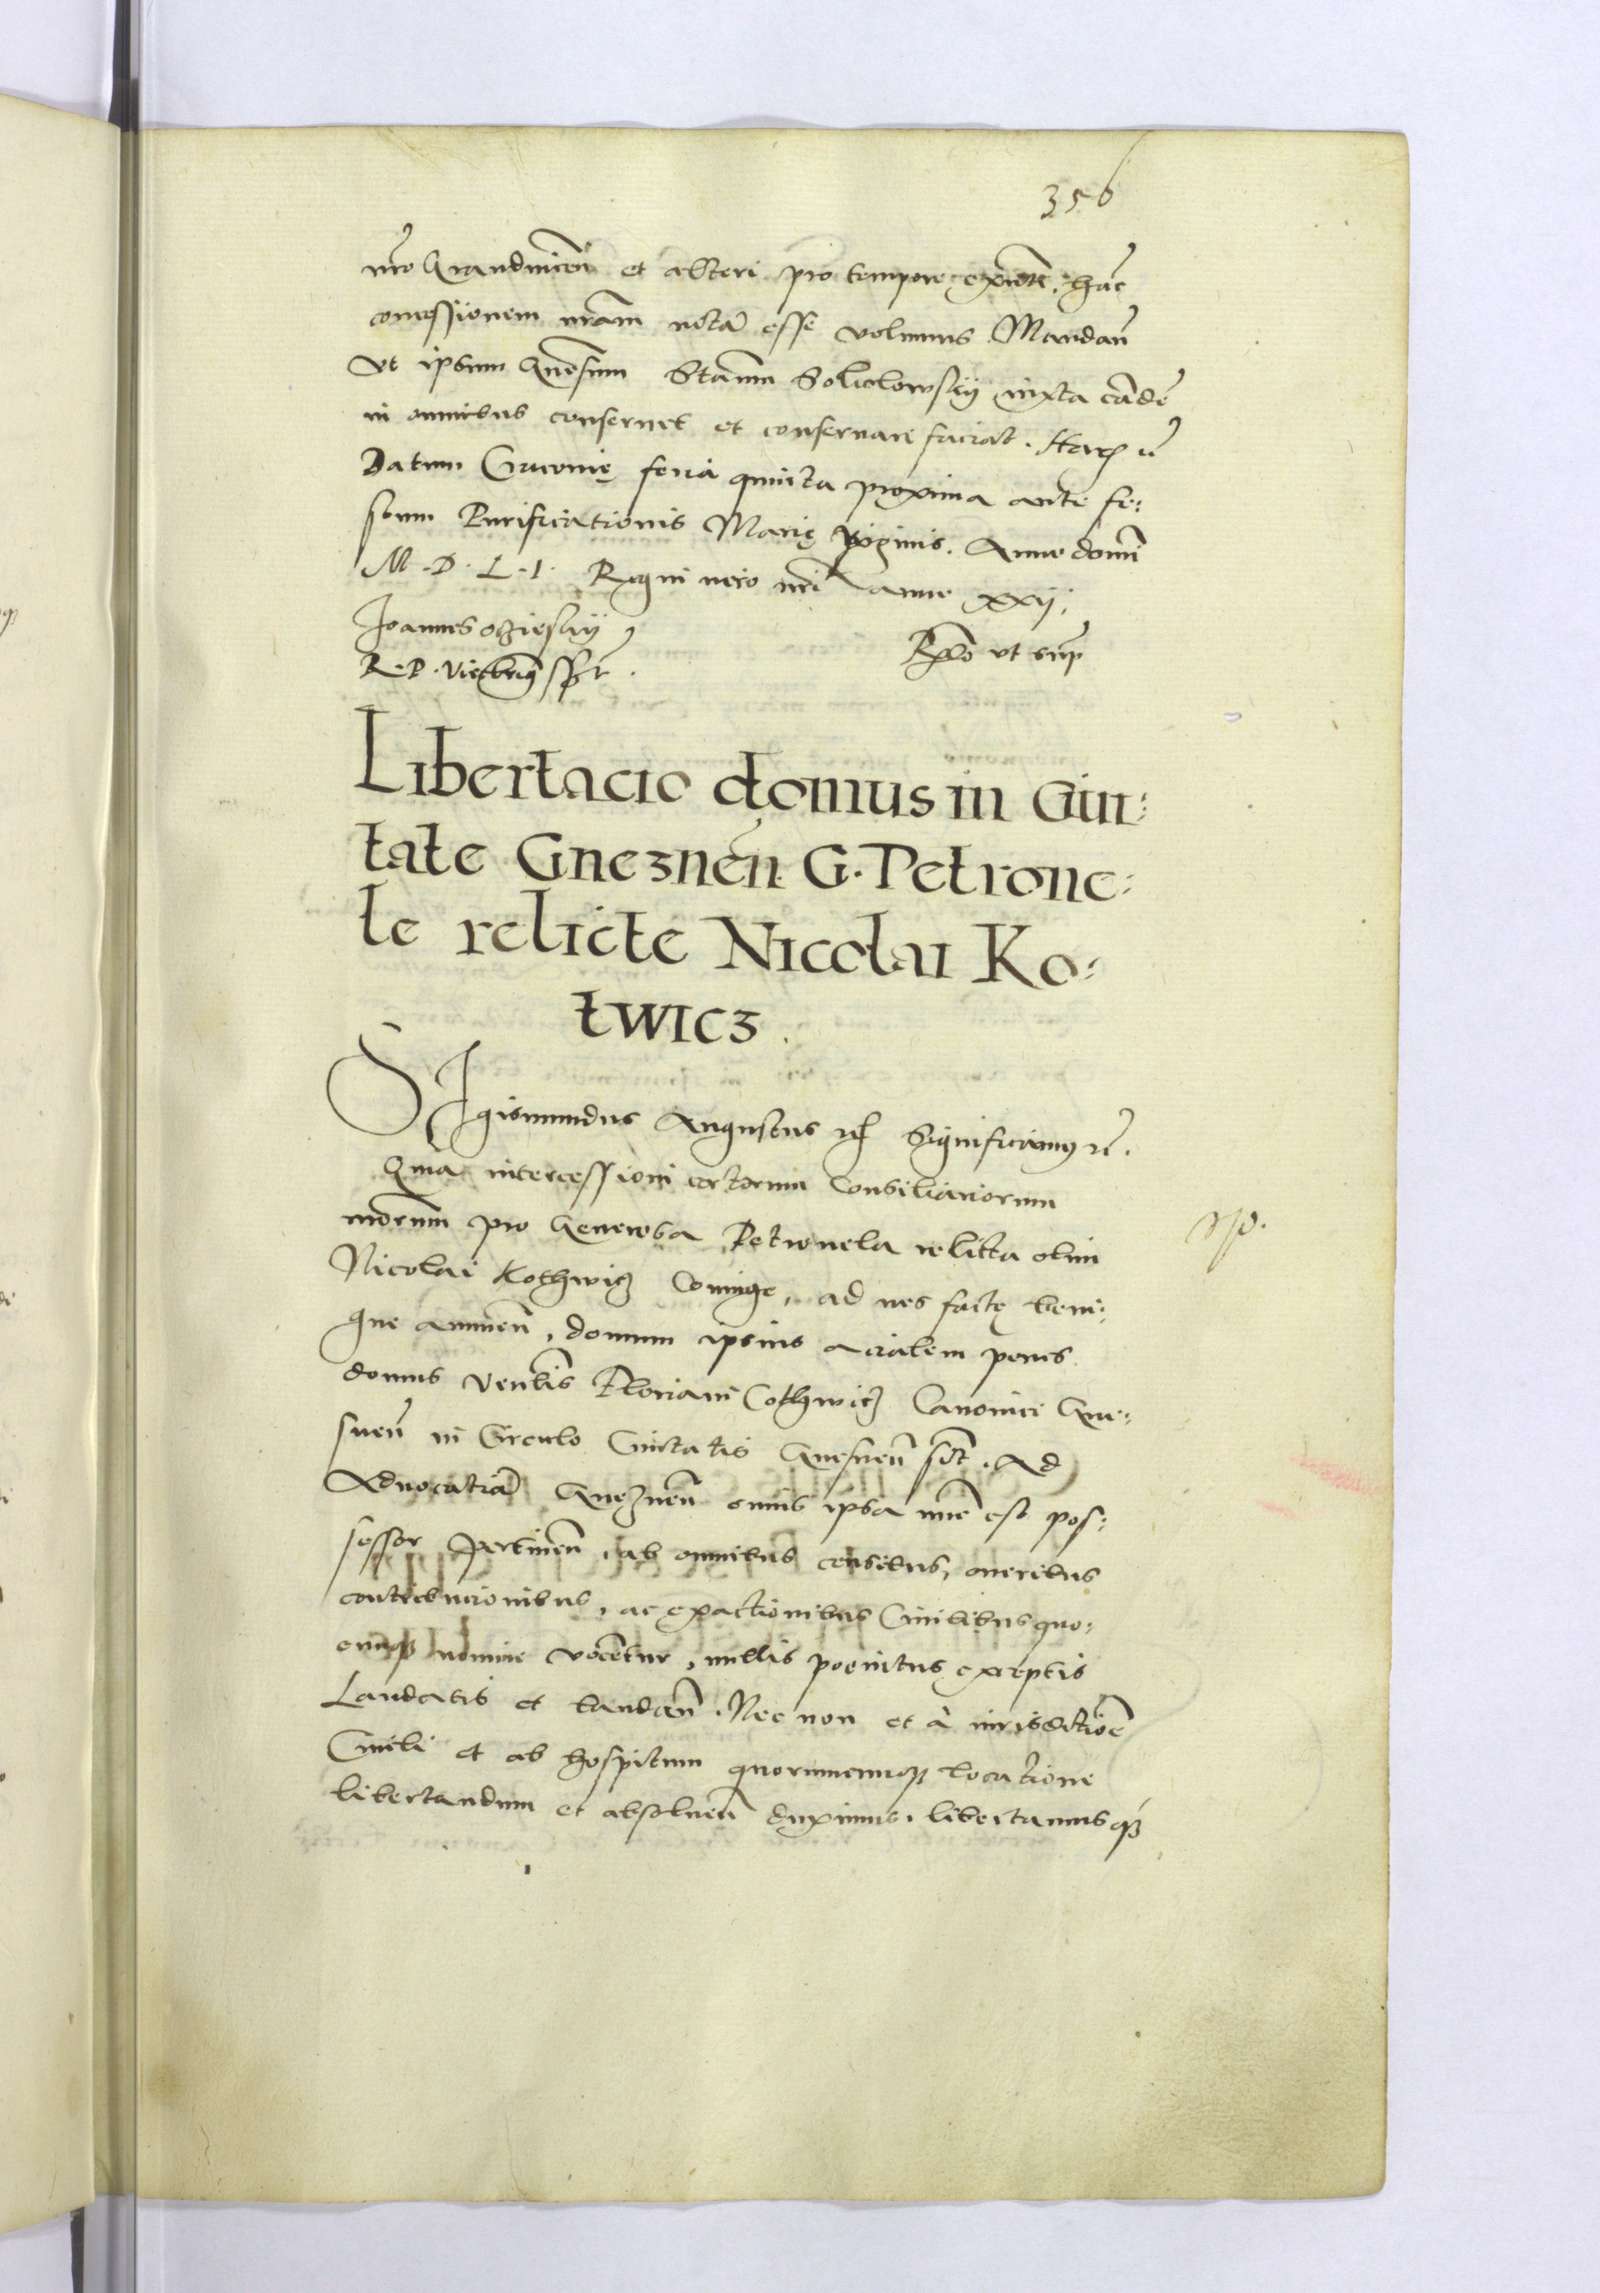 356
nro Graudnicen̄ et alteri pro tempore exn̄ti, hanc
concessionem nram notā esse volumus Mandan̄
Vt ipsum Gn̄osum Stanm Soliolowsky iuxta eandē
in omnibus conseruet et conseruare faciat. Harū
Datum Cracouię feria quinta proxima ante fe:
stum Purificationis Marię Virginis. Anno domī
M. D. L. I. Regni vero nrī anno xxij.
Joannes oczieskÿ
R. P. Vicecancus sspt.
Rlō vt sup
Libertacio domus in Ciui:
tate Gneznen̄. G. Petrone:
le relicte Nicolai Ko:
twicz.
SIgismundus Augustus Significamus
Quia intercessioni certorum Consiliariorum
nrorum pro Generosa Petronela relicta olim
Nicolai Kothwicz Coniuge, ad nos factę beni:
gne annuen̄, domum ipsius acialem penes
domus Venēlis Floriani Cothwicz Canonici Gne:
snen̄ in Circulo Ciuitatis Gnesnen̄ sit̄. Ad
Aduocatiā Gneznen̄ cuius ipsa nunc est pos:
sessor pertinen̄, ab omnibus censibus, oneribus
contribucionibus, ac exactionibus Ciuilibus quo:
cunqz nomine vocentur, nullis poenitus exceptis
Laudatis et laudan̄. Nec non et à iurisditiōe
Ciuili et ab hospitum quorumcunqz locatione
libertandum et absoluen̄ duximus. libertamusqz